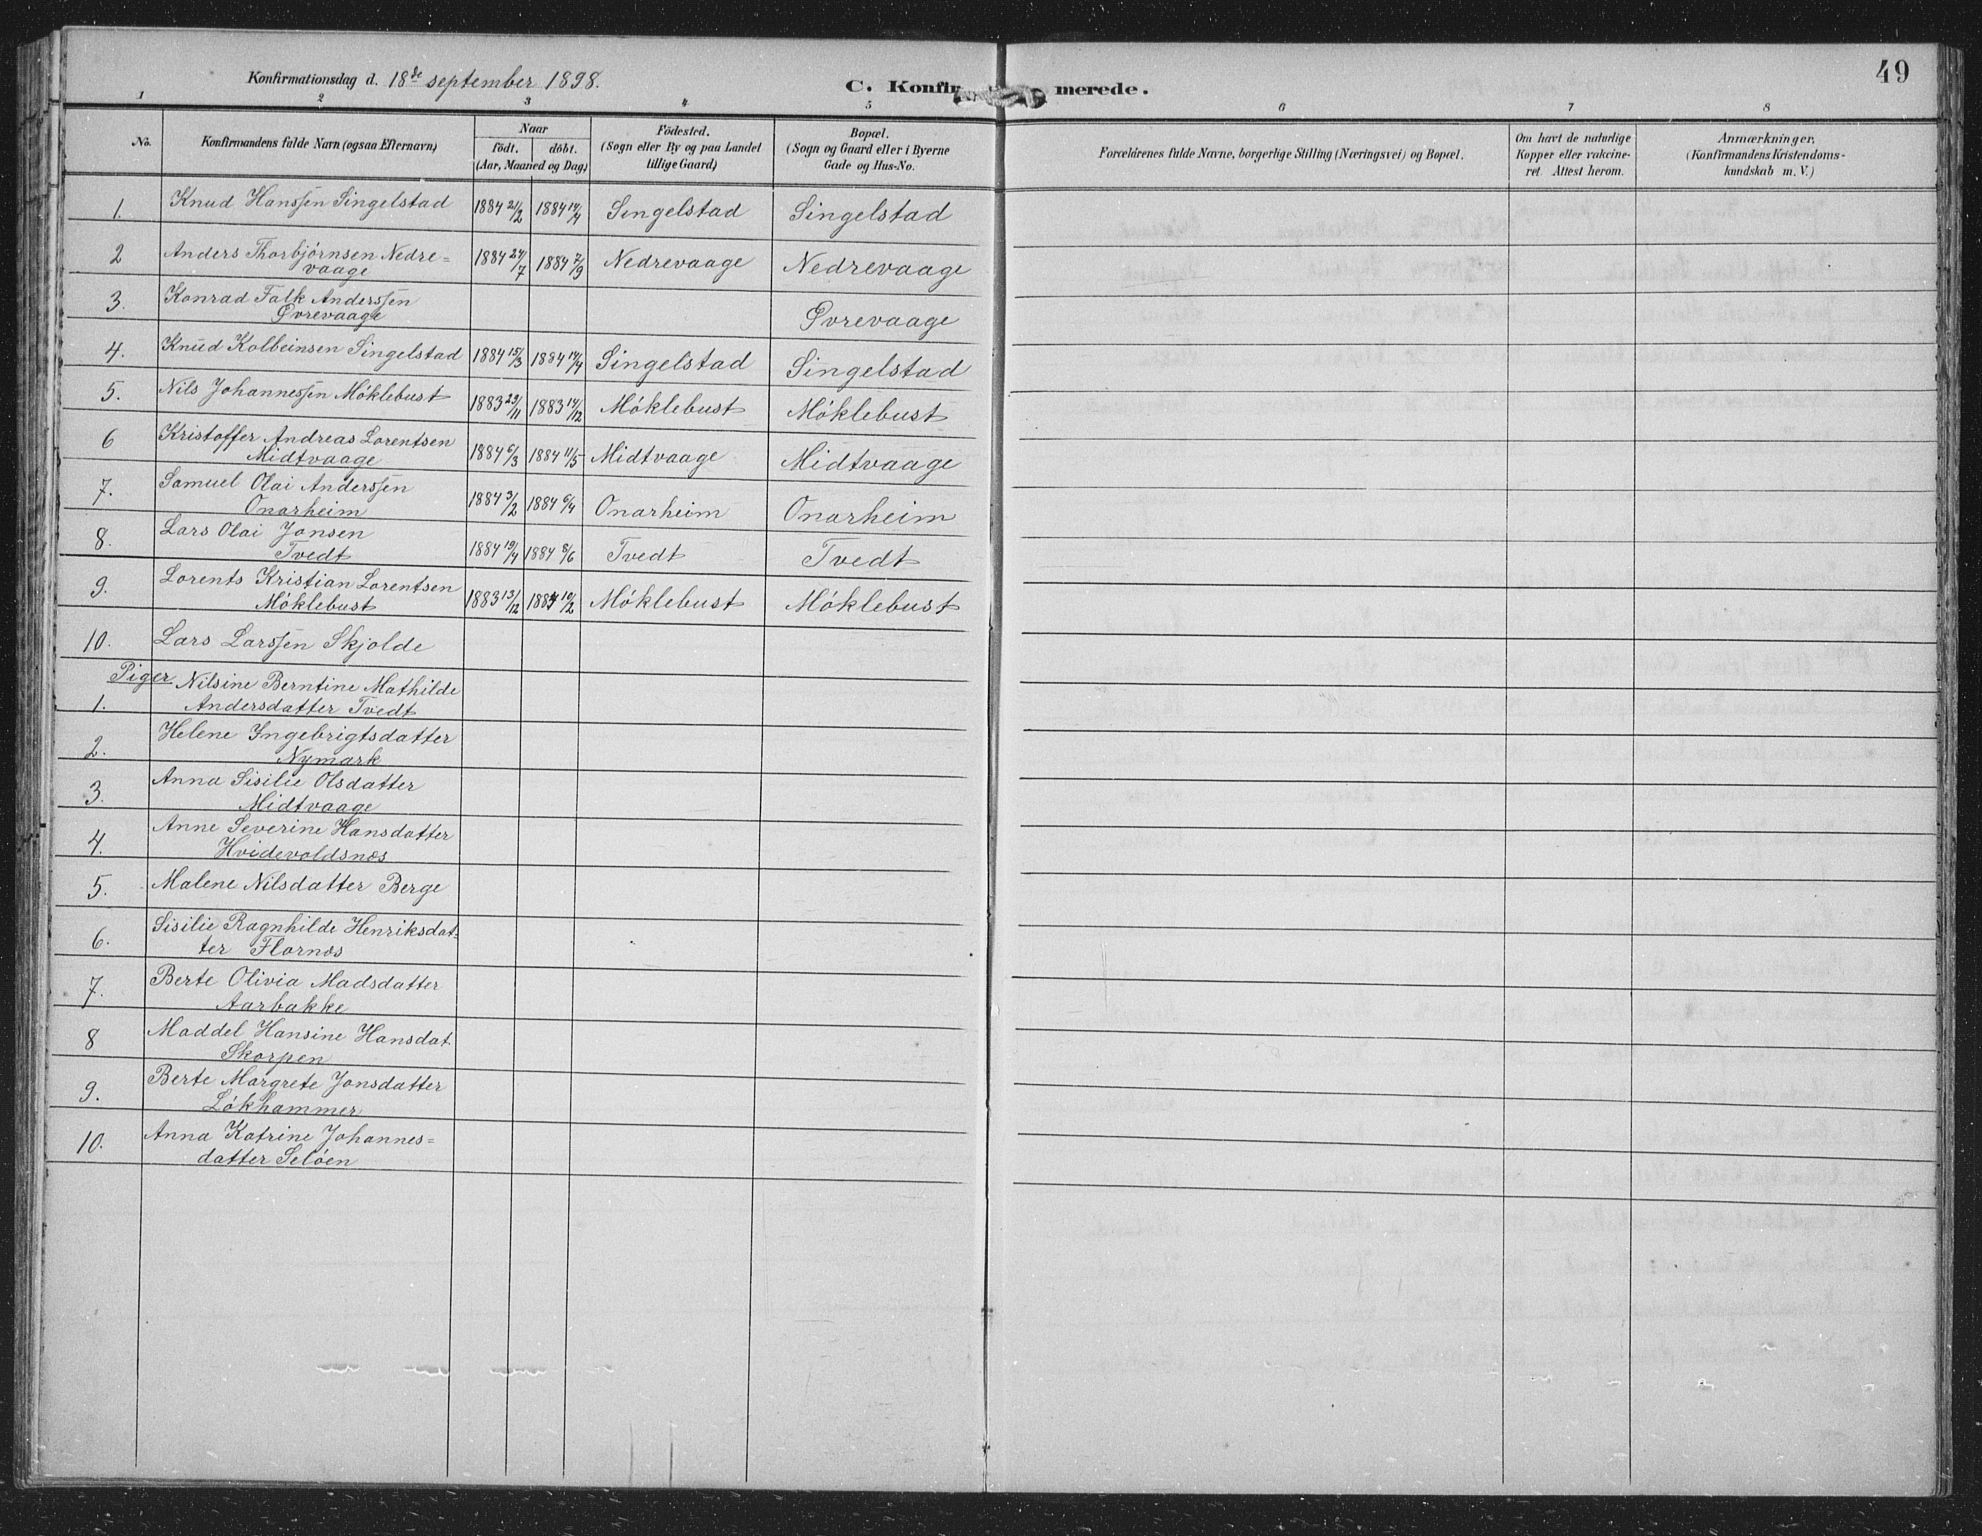 49
Konfirmationsdag d. 18de september 1898.
C. Konfir merede.
1 2 3 4 5 6 7 8
No. Konfirmandens fulde Navn (ogsaa Efternavn) Naar Födt. döbt. (Aar, Maaned og Dag) Födested. (Sogn eller By og paa Landet tillige Gaard) Bopæl. (Sogn og Gaard eller i Byerne Gade og Hus-No. Forældrenes fulde Navne, borgerlige Stilling (Næringsvei) og Bopæl. Om havt de naturlige Kopper eller vakcineret. Attest herom. Anmærkninger. (Konfirmandens Kristendomskundskab m. V.)
1. Knud Hanssen Singelstad 1884 21/2 1884 14/4 Singelstad Singelstad
2 Anders Thorbjørnsen Nedre=
vaage 1884 24/7 1884 7/9 Nedrevaage Nedrevaage
3. Konrad Falk Anderssen
Øvrevaage Øvrevaage
4. Knud Kolbeinsen Singelstad 1884 15/3 1884 14/4 Singelstad Singelstad
5. Nils Johannessen Móklebust 1883 29/11 1883 14/12 Móklebust Móklebust
6 Kristoffer Andreas Lorentsen
Midtvaage 1884 6/3 1884 11/5 Midtvaage Midtvaage
7. Samuel Olai Anderssen
Onarheim 1884 3/2 1884 6/4 Onarheim Onarheim
8. Lars Olai Jonsen
Tvedt 1884 19/4 1884 8/6 Tvedt Tvedt
9. Lorents Kristian Lorentsen
Móklebust 1883 13/12 1884 10/2 Móklebust Móklebust
10. Lars Larssen Skjolde
Piger
1. Nilsine Berntine Mathilde
Andersdatter Tvedt
2. Helene Ingebrigtsdatter
Nymark
3. Anna Sisilie Olsdatter
Midtvaage
4. Anne Severine Hansdatter
Hvidevoldsnæs
5. Malene Nilsdatter Berge
6. Sisilie Ragnhilde Henriksdat-
ter Flornæs
7. Berte Olivia Madsdatter
Aarbakke
8 Maddel Hansine Hansdat.
Skorpen
9. Berte Margrete Jonsdatter
Lókhammer
10. Anna Katrine Johannes=
datter Selóen